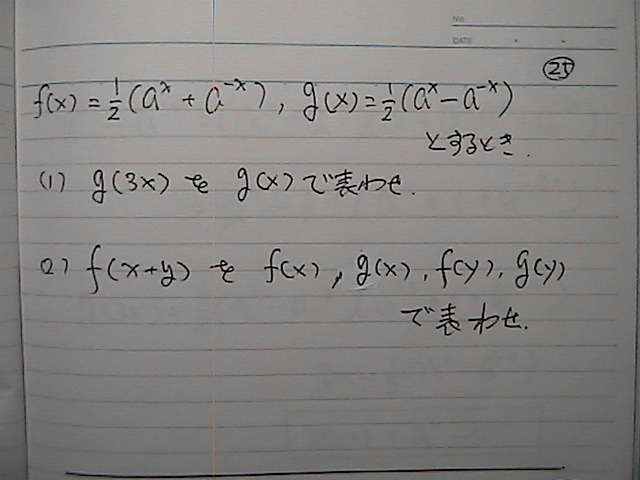 No.
DATE
㉕
f(x) = 1/2 (a^x + a^-x), g(x) = 1/2 (a^x - a^-x)
とするとき.
(1) g(3x) を g(x) で表わせ.
(2) f(x+y) を f(x), g(x), f(y), g(y)
で表わせ.